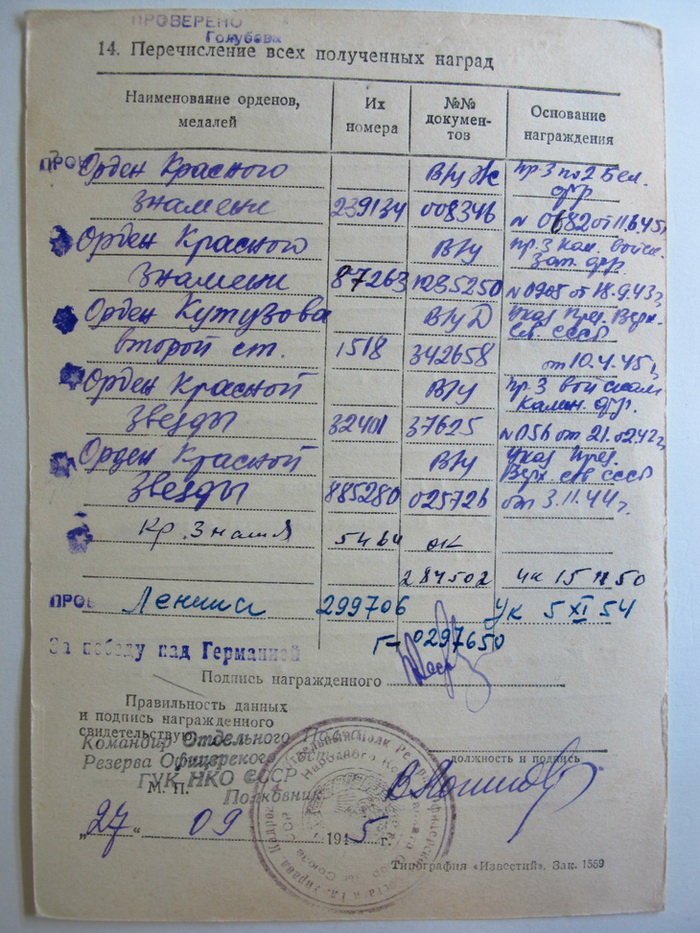 ПРОВЕРЕНО
Голубова
14. Перечисление всех полученных наград
Наименование орденов, медалей
Их номера
№№ документов
Основание награждения
Орден Красного ВруЖ пр. З по 2 Бел. фр
Знамени 239134 008346 № 0682 от 11.6.45г
Орден Красного В/у пр. З Кал. войск. Зап. фр
Знамени 87263 1035250 № 0908 от 18.9.43г,
Орден Кутузова В/у Д Указ През. Верх. св СССР
второй ст. 1518 342658 от 10.4.45г,
Орден Красной В/у пр. З войскам Калин. фр.
Звезды 32401 37625 № 056 от 21.02.42г,
Орден Красной В/у Указ През. Верх. сов СССР
Звезды 885280 025726 от 3.11.44г.
Кр. Знамя 5464 ОК
287502 Ук 15 11 50
Ленина 299706 Ук 5 XI 54
Г-0297650
За победу над Германией
Подпись награжденного
Правильность данных
и подпись награжденного
свидетельствую
Командир Отдельного
Резерва Офицерского
ГУК НКО СССР
Полковник
должность и подпись
М. П.
„27“ 09 1945 г.
Типография «Известий». Зак. 1569